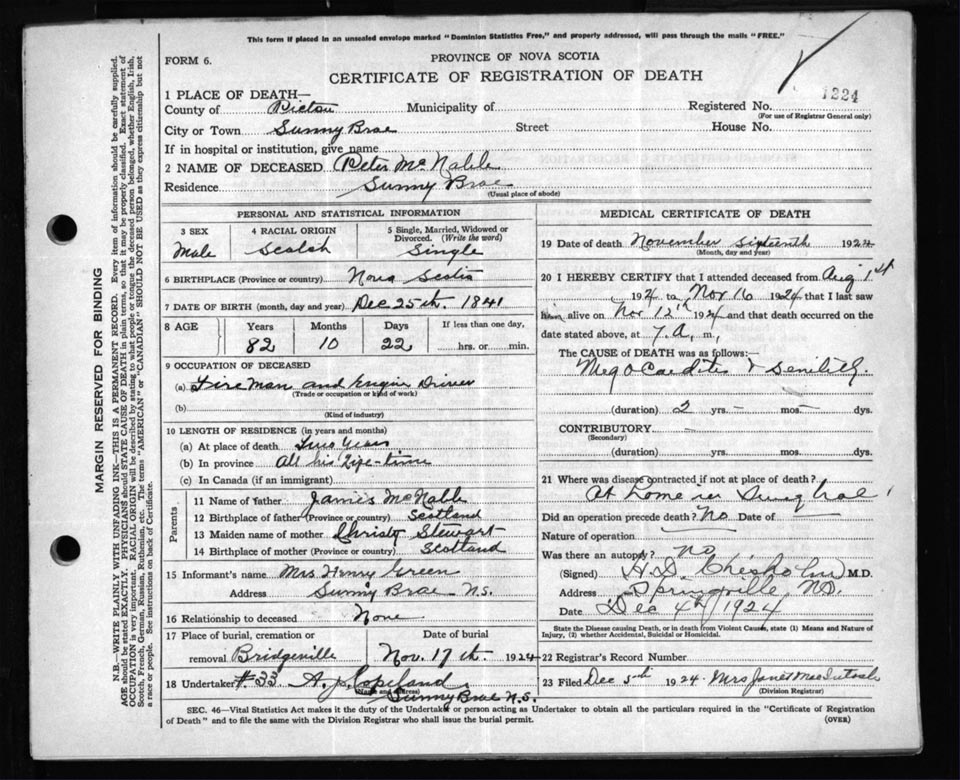 This form if placed in an unsealed envelope marked "Dominion Statistics Free," and properly addressed, will pass through the mails "FREE."
FORM 6.
PROVINCE OF NOVA SCOTIA
CERTIFICATE OF REGISTRATION OF DEATH
1224
1 PLACE OF DEATH—
County of Pictou Municipality of Registered No.
(For use of Registrar General only)
City or Town Sunny Brae Street House No.
If in hospital or institution, give name
2 NAME OF DECEASED Peter McNabb
Residence Sunny Brae
(Usual place of abode)
PERSONAL AND STATISTICAL INFORMATION
3 SEX 4 RACIAL ORIGIN 5 Single, Married, Widowed or Divorced. (Write the word)
Male Scotch Single
6 BIRTHPLACE (Province or country) Nova Scotia
7 DATE OF BIRTH (month, day and year) Dec 25th. 1841
8 AGE Years Months Days If less than one day,
82 10 22 hrs. or min.
9 OCCUPATION OF DECEASED
(a) Fireman and Engine Driver
(Trade or occupation or kind of work)
(b)
(Kind of industry)
10 LENGTH OF RESIDENCE (in years and months)
(a) At place of death Two Years
(b) In province All his Life-time
(c) In Canada (if an immigrant)
Parents
11 Name of father James McNabb
12 Birthplace of father (Province or country) Scotland
13 Maiden name of mother Christy Stewart
14 Birthplace of mother (Province or country) Scotland
15 Informant's name Mrs Henry Green
Address Sunny Brae N.S.
16 Relationship to deceased None
17 Place of burial, cremation or removal Bridgeville
Date of burial Nov. 17th. 1924
18 Undertaker #.33 A. J. Copeland
(Name and address)
Sunny Brae N.S.
MEDICAL CERTIFICATE OF DEATH
19 Date of death November sixteenth 1924
(Month, day and year)
20 I HEREBY CERTIFY that I attended deceased from Aug 1st
1924 to Nov 16 1924 that I last saw
him alive on Nov 12th 1924 and that death occurred on the
date stated above, at 7. A. m,
The CAUSE OF DEATH was as follows:
Myocarditis & Senility.
(duration) 2 yrs. – mos – dys.
CONTRIBUTORY
(Secondary)
(duration) yrs. mos. dys.
21 Where was disease contracted if not at place of death?
At home in Sunny Brae
Did an operation precede death? No Date of —
Nature of operation —
Was there an autopsy? No
(Signed) H. D. Chisholm M.D.
Address Springville N.S.
Date Dec 4th/1924
State the Disease causing Death, or in death from Violent Causes, state (1) Means and Nature of
Injury, (2) whether Accidental, Suicidal or Homicidal.
22 Registrar's Record Number
23 Filed Dec 5th 1924 Mrs Janet MacIntosh
(Division Registrar)
SEC. 46—Vital Statistics Act makes it the duty of the Undertaker or person acting as Undertaker to obtain all the particulars required in the "Certificate of Registration
of Death" and to file the same with the Division Registrar who shall issue the burial permit.
(OVER)
MARGIN RESERVED FOR BINDING
N.B.—WRITE PLAINLY WITH UNFADING INK—THIS IS A PERMANENT RECORD. Every item of information should be carefully supplied.
AGE should be stated EXACTLY. PHYSICIANS should STATE CAUSE OF DEATH in plain terms, so that it may be properly classified. Exact statement of
OCCUPATION is very important. RACIAL ORIGIN will be described by stating to what people or tongue the deceased person belonged, whether English, Irish,
Scotch, French, German, Russian, Ruthenian, etc. The terms "AMERICAN" or "CANADIAN" SHOULD NOT BE USED as they express citizenship but not
a race or people. See instructions on back of Certificate.